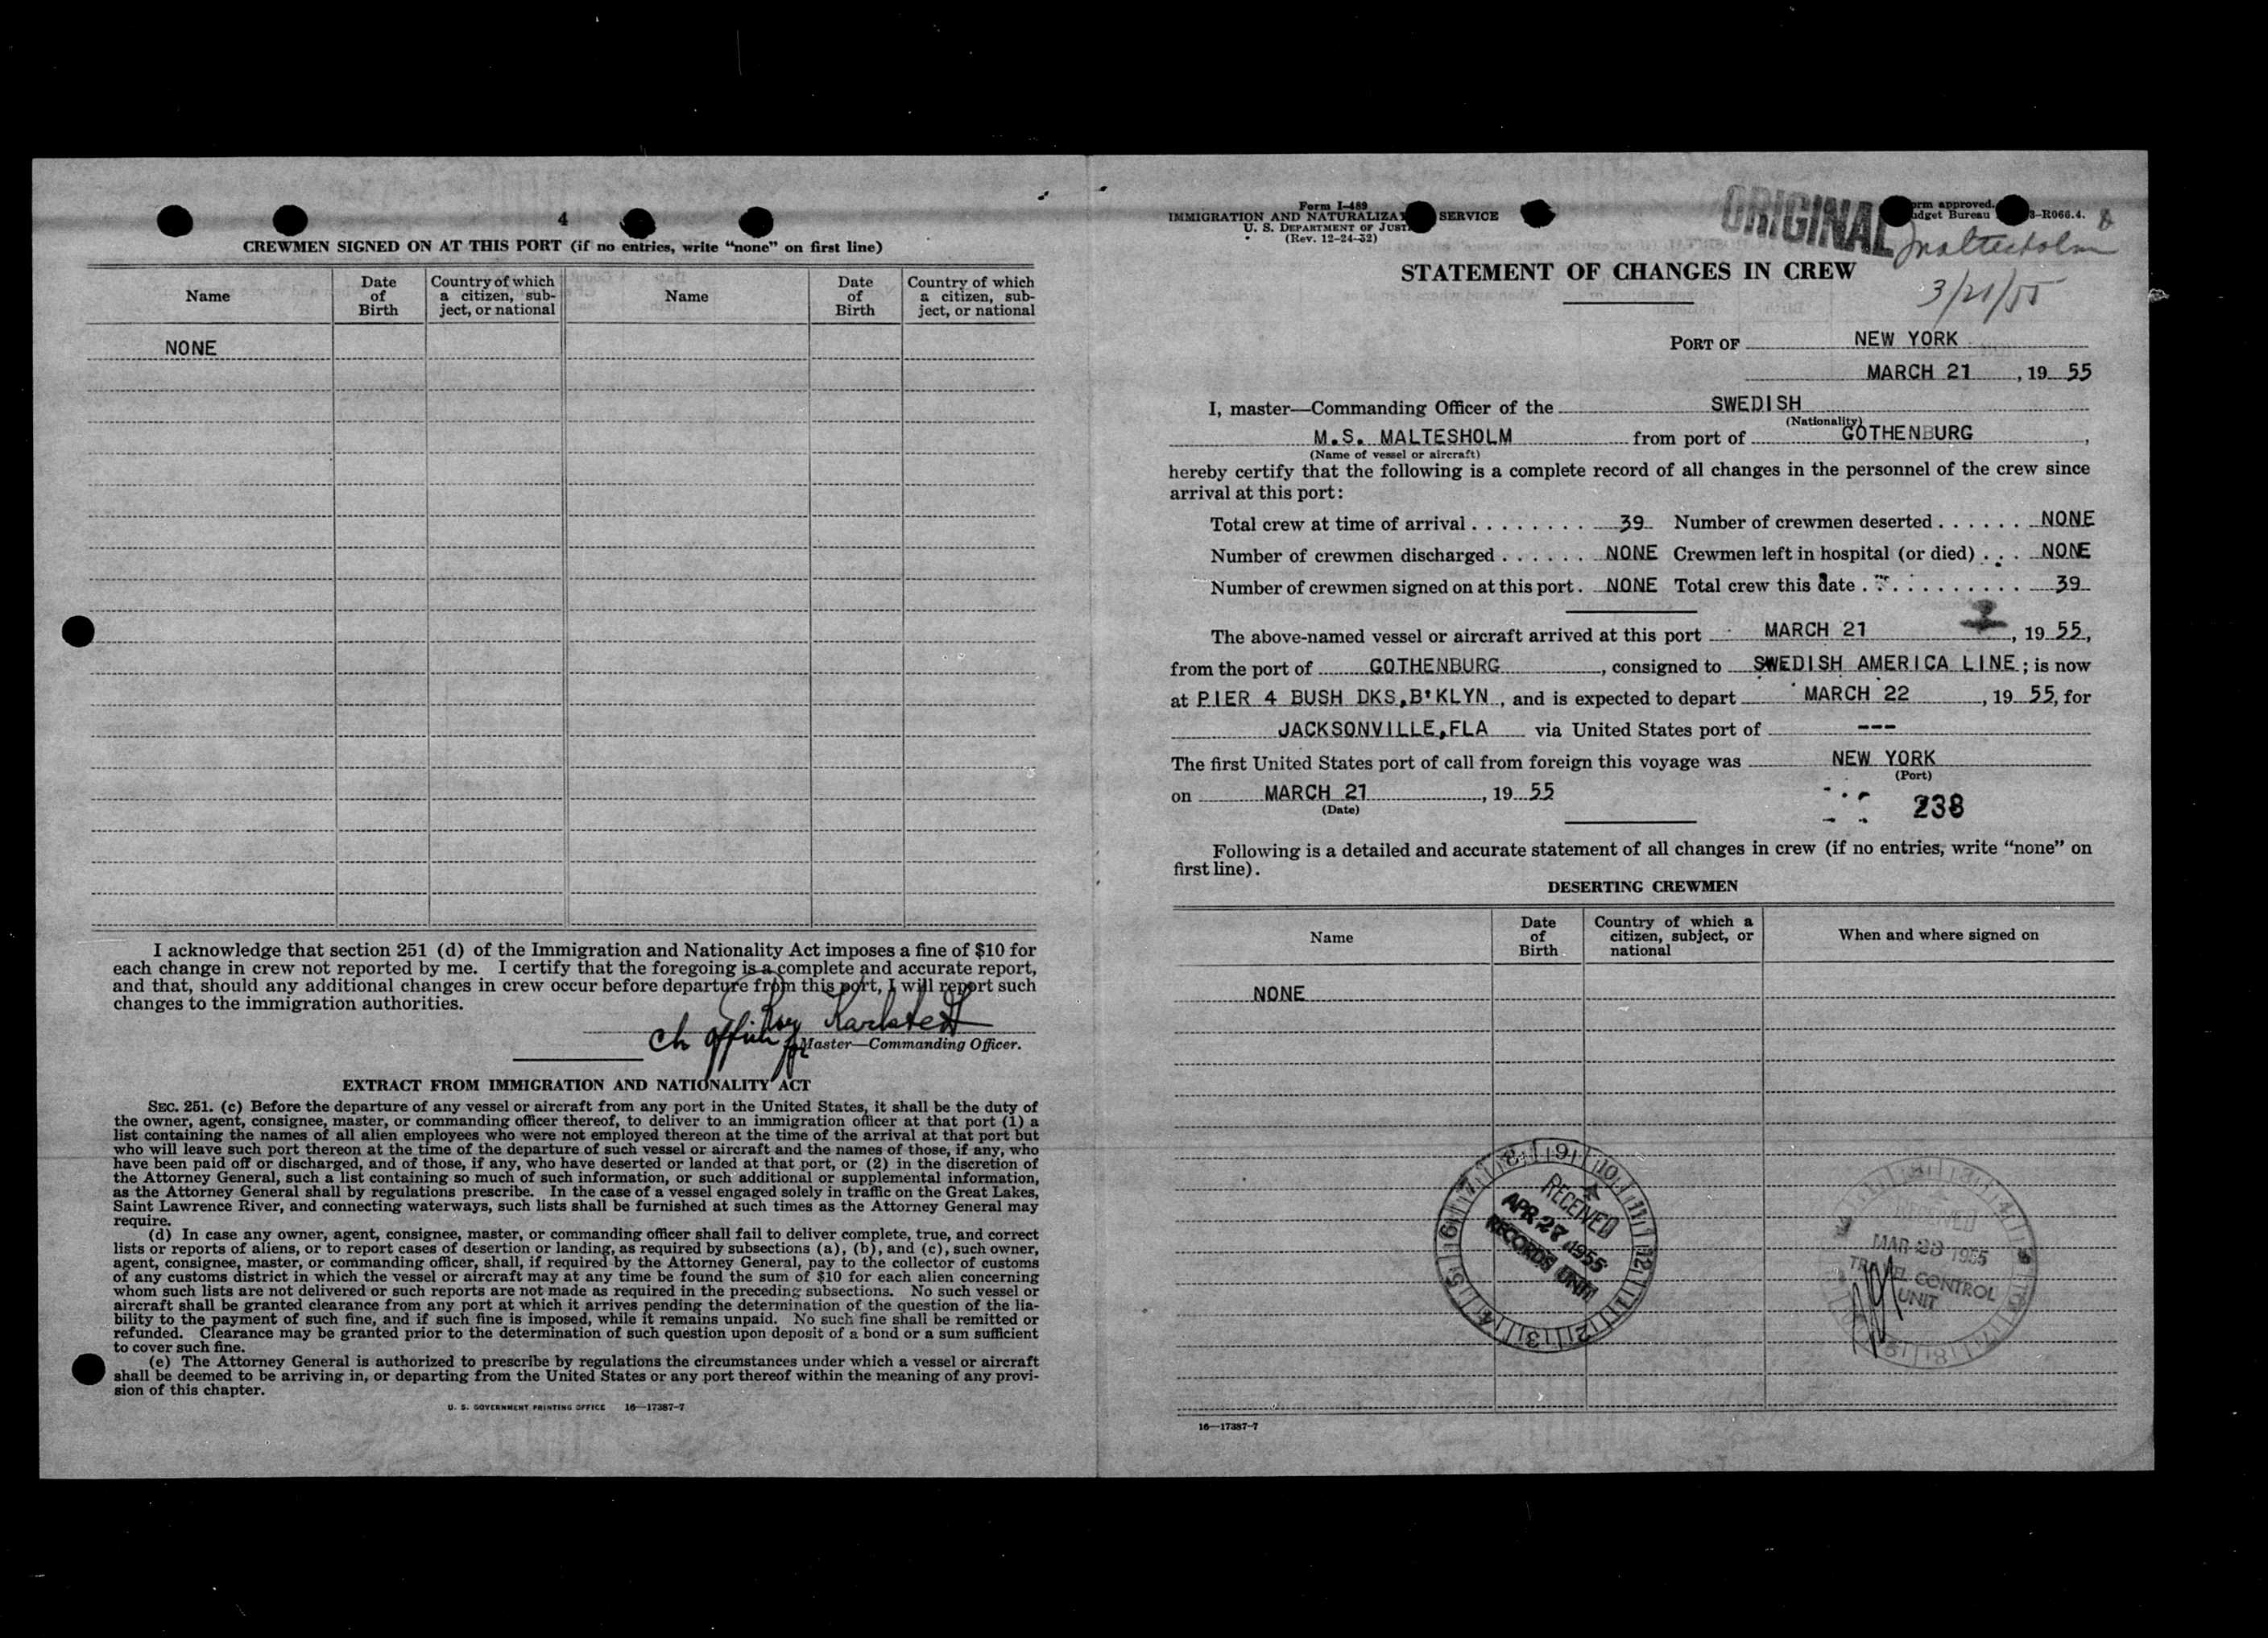 4
CREWMEN SIGNED ON AT THIS PORT (if no entries, write “none” on first line)
Name Date of Birth Country of which a citizen, sub-ject, or national Name Date of Birth Country of which a citizen, sub-ject, or national
NONE
I acknowledge that section 251 (d) of the Immigration and Nationality Act imposes a fine of $10 for
each change in crew not reported by me. I certify that the foregoing is a complete and accurate report,
and that, should any additional changes in crew occur before departure from this port, I will report such
changes to the immigration authorities.
Karlstedt
Ch officer for
Master—Commanding Officer.
EXTRACT FROM IMMIGRATION AND NATIONALITY ACT
SEC. 251. (c) Before the departure of any vessel or aircraft from any port in the United States, it shall be the duty of
the owner, agent, consignee, master, or commanding officer thereof, to deliver to an immigration officer at that port (1) a
list containing the names of all alien employees who were not employed thereon at the time of the arrival at that port but
who will leave such port thereon at the time of the departure of such vessel or aircraft and the names of those, if any, who
have been paid off or discharged, and of those, if any, who have deserted or landed at that port, or (2) in the discretion of
the Attorney General, such a list containing so much of such information, or such additional or supplemental information,
as the Attorney General shall by regulations prescribe. In the case of a vessel engaged solely in traffic on the Great Lakes,
Saint Lawrence River, and connecting waterways, such lists shall be furnished at such times as the Attorney General may
require.
(d) In case any owner, agent, consignee, master, or commanding officer shall fail to deliver complete, true, and correct
lists or reports of aliens, or to report cases of desertion or landing, as required by subsections (a), (b), and (c), such owner,
agent, consignee, master, or commanding officer, shall, if required by the Attorney General, pay to the collector of customs
of any customs district in which the vessel or aircraft may at any time be found the sum of $10 for each alien concerning
whom such lists are not delivered or such reports are not made as required in the preceding subsections. No such vessel or
aircraft shall be granted clearance from any port at which it arrives pending the determination of the question of the lia-
bility to the payment of such fine, and if such fine is imposed, while it remains unpaid. No such fine shall be remitted or
refunded. Clearance may be granted prior to the determination of such question upon deposit of a bond or a sum sufficient
to cover such fine.
(e) The Attorney General is authorized to prescribe by regulations the circumstances under which a vessel or aircraft
shall be deemed to be arriving in, or departing from the United States or any port thereof within the meaning of any provi-
sion of this chapter.
U. S. GOVERNMENT PRINTING OFFICE 16—17387-7
Form I-489
IMMIGRATION AND NATURALIZA SERVICE
U. S. DEPARTMENT OF JUST
(Rev. 12-24-52)
ORIGINAL
rm approved.
dget Bureau 3-R066.4.
Maltesholm
3/21/55
STATEMENT OF CHANGES IN CREW
PORT OF NEW YORK
MARCH 21, 1955
I, master—Commanding Officer of the SWEDISH
(Nationality)
M.S. MALTESHOLM from port of GOTHENBURG,
(Name of vessel or aircraft)
hereby certify that the following is a complete record of all changes in the personnel of the crew since
arrival at this port:
Total crew at time of arrival . . . . . . . . 39 Number of crewmen deserted . . . . . . NONE
Number of crewmen discharged . . . . . . NONE Crewmen left in hospital (or died) . . . NONE
Number of crewmen signed on at this port . NONE Total crew this date . . . . . . . . . . . 39
The above-named vessel or aircraft arrived at this port MARCH 21, 1955,
from the port of GOTHENBURG, consigned to SWEDISH AMERICA LINE; is now
at PIER 4 BUSH DKS,B'KLYN, and is expected to depart MARCH 22, 1955, for
JACKSONVILLE,FLA via United States port of ---
The first United States port of call from foreign this voyage was NEW YORK
(Port)
on MARCH 21, 1955
(Date)
238
Following is a detailed and accurate statement of all changes in crew (if no entries, write “none” on
first line).
DESERTING CREWMEN
Name Date of Birth Country of which a citizen, subject, or national When and where signed on
NONE
RECEIVED
APR 27 1955
RECORDS UNIT
RECEIVED
MAR 1955
TRAVEL CONTROL
UNIT
16—17387-7